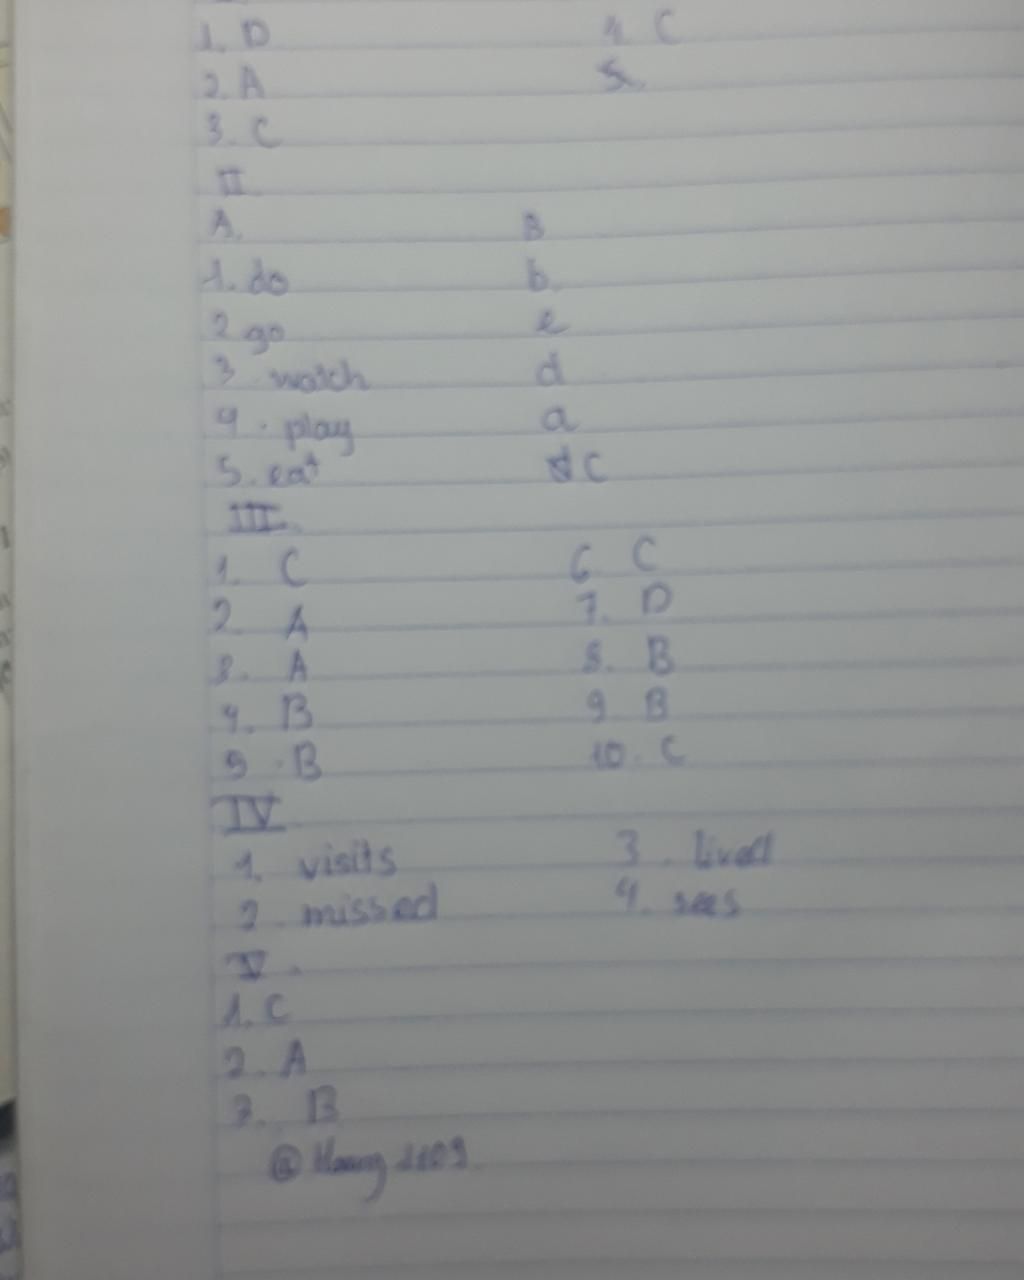 1. D 4. C
2. A 5.
3. C
II
A. B
1. do b.
2 go e
3. watch d
4. play a
5. eat C
III.
1. C 6 C
2. A 7. D
3. A 8. B
4. B 9 B
5. B 10. C
IV
1. visits 3. lived
2. missed 4. sees
V.
1. C
2. A
3. B
@Hoang1109